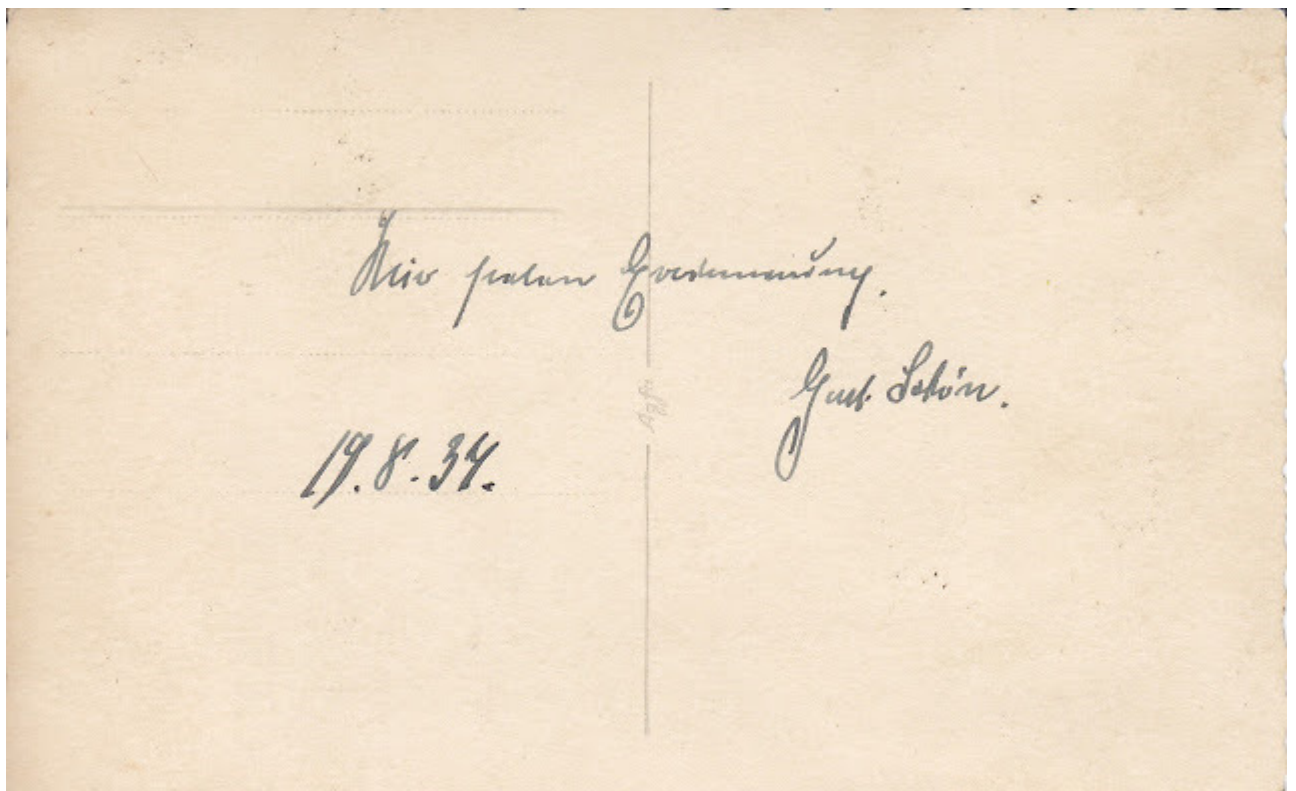 Zur frohen Erinnerung.
Gust. Schön.
19.8.34.